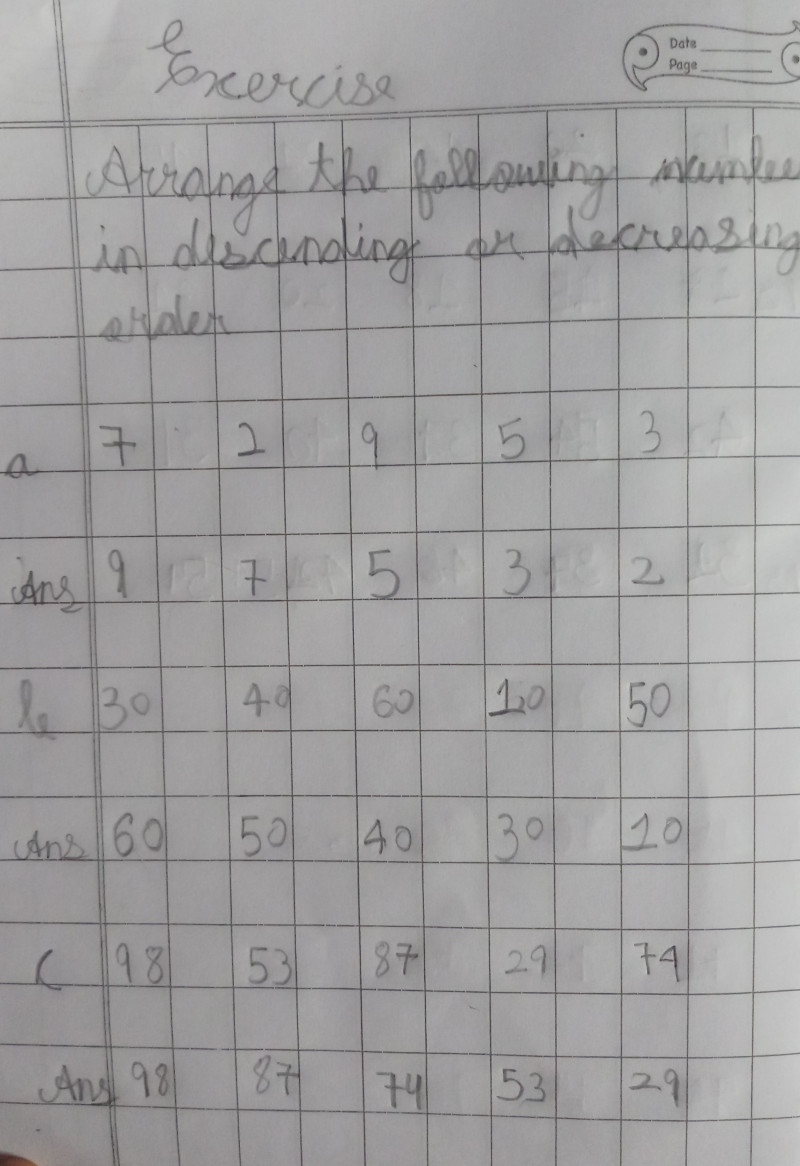 Exercise
Date
Page
Arrange the following number
in discending or decreasing
order
a 7 2 9 5 3
Ans 9 7 5 3 2
b 30 40 60 10 50
Ans 60 50 40 30 10
C 98 53 87 29 74
Ans 98 87 74 53 29